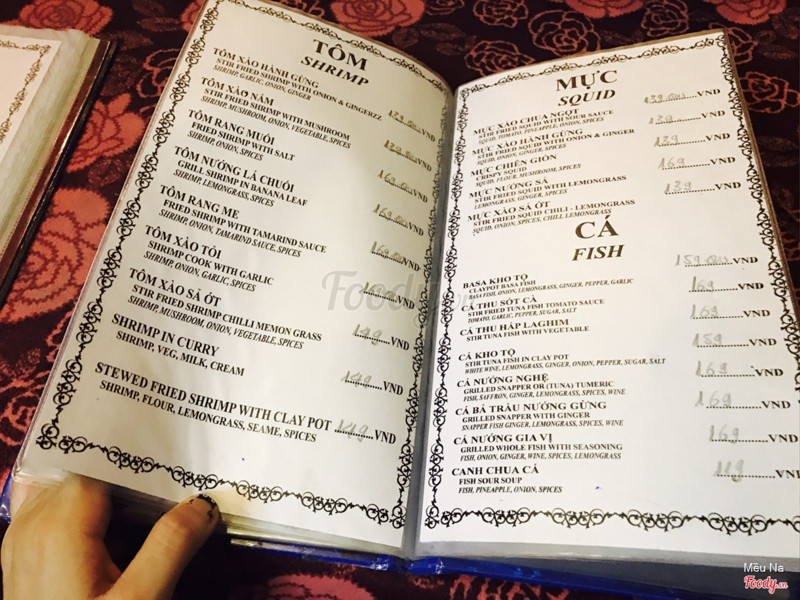 TÔM
SHRIMP
TÔM XÀO HÀNH GỪNG
STIR FRIED SHRIMP WITH ONION & GINGERZZ
SHRIMP, GARLIC, ONION, GINGER
VND
TÔM XÀO NẤM
STIR FRIED SHRIMP WITH MUSHROOM
SHRIMP, MUSHROOM, ONION, VEGETABLE, SPICES
VND
TÔM RANG MUỐI
FRIED SHRIMP WITH SALT
SHRIMP, ONION, SPICES
VND
TÔM NƯỚNG LÁ CHUỐI
GRILL SHRIMP IN BANANA LEAF
SHRIMP, LEMONGRASS, SPICES
VND
TÔM RANG ME
FRIED SHRIMP WITH TAMARIND SAUCE
SHRIMP, ONION, TAMARIND SAUCE, SPICES
VND
TÔM XÀO TỎI
SHRIMP COOK WITH GARLIC
SHRIMP, ONION, GARLIC, SPICES
VND
TÔM XÀO SẢ ỚT
STIR FRIED SHRIMP CHILLI MEMON GRASS
SHRIMP, MUSHROOM, ONION, VEGETABLE, SPICES
149 VND
SHRIMP IN CURRY
SHRIMP, VEG, MILK, CREAM
149 VND
STEWED FRIED SHRIMP WITH CLAY POT
SHRIMP, FLOUR, LEMONGRASS, SEAME, SPICES
149 VND
MỰC
SQUID
MỰC XÀO CHUA NGỌT
STIR FRIED SQUID WITH SOUR SAUCE
SQUID, TOMATO, PINEAPPLE, ONION, SPICES
VND
MỰC XÀO HÀNH GỪNG
STIR FRIED SQUID WITH ONION & GINGER
SQUID, ONION, GINGER, SPICES
139 VND
MỰC CHIÊN GIÒN
CRISPY SQUID
SQUID, FLOUR, MUSHROOM, SPICES
139 VND
MỰC NƯỚNG SẢ
STIR FRIED SQUID WITH LEMONGRASS
LEMONGRASS, GINGER, SPICES
169 VND
MỰC XÀO SẢ ỚT
STIR FRIED SQUID CHILI - LEMONGRASS
SQUID, ONION, SPICES, CHILI, LEMONGRASS
139 VND
CÁ
FISH
BASA KHO TỘ
CLAYPOT BASA FISH
BASA FISH, ONION, LEMONGRASS, GINGER, PEPPER, GARLIC
VND
CÁ THU SỐT CÀ
STIR FRIED TUNA FISH TOMATO SAUCE
TOMATO, GARLIC, PEPPER, SUGAR, SALT
169 VND
CÁ THU HẤP LAGHIM
STIR TUNA FISH WITH VEGETABLE
169 VND
CÁ KHO TỘ
STIR TUNA FISH IN CLAY POT
WHITE WINE, LEMONGRASS, GINGER, ONION, PEPPER, SUGAR, SALT
159 VND
CÁ NƯỚNG NGHỆ
GRILLED SNAPPER OR (TUNA) TUMERIC
FISH, SAFFRON, GINGER, LEMONGRASS, SPICES, WINE
169 VND
CÁ BÃ TRẦU NƯỚNG GỪNG
GRILLED SNAPPER WITH GINGER
SNAPPER FISH GINGER, LEMONGRASS, SPICES, WINE
169 VND
CÁ NƯỚNG GIA VỊ
GRILLED WHOLE FISH WITH SEASONING
FISH, ONION, GINGER, WINE, SPICES, LEMONGRASS
169 VND
CANH CHUA CÁ
FISH SOUR SOUP
FISH, PINEAPPLE, ONION, SPICES
119 VND
Mều Na
Foody.vn